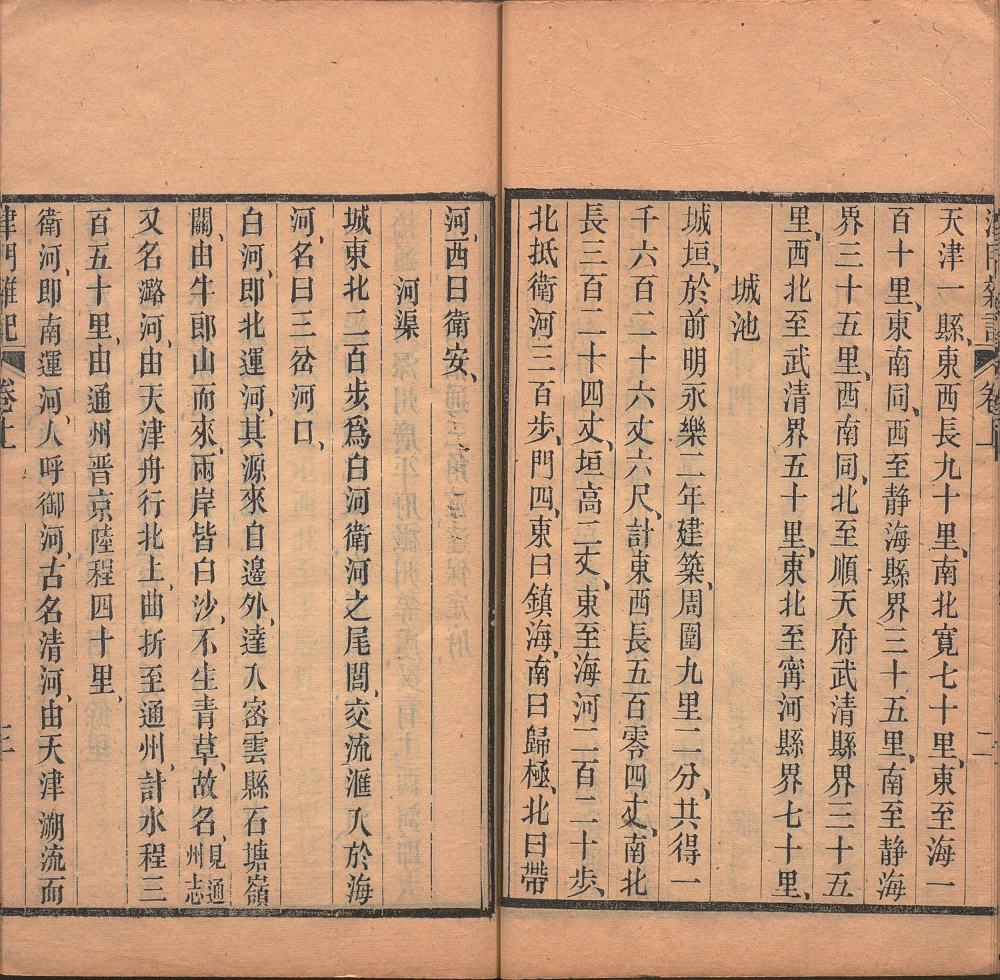 津門雜記
卷上
二
天津一縣、東西長九十里、南北寬七十里、東至海一
百十里、東南同、西至靜海縣界三十五里、南至靜海
界三十五里、西南同、北至順天府武清縣界三十五
里、西北至武清界五十里、東北至寗河縣界七十里、
城池
城垣、於前明永樂二年建築、周圍九里二分、共得一
千六百二十六丈六尺、計東西長五百零四丈、南北
長三百二十四丈、垣高二丈、東至海河二百二十步、
北抵衛河三百步、門四、東曰鎮海、南曰歸極、北曰帶
河、西曰衛安、
河渠
城東北二百步、爲白河衛河之尾閭、交流滙入於海
河、名曰三岔河口、
白河、即北運河、其源來自邊外、達入密雲縣石塘嶺
關、由牛郎山而來、兩岸皆白沙、不生青草、故名、見通州志
又名潞河、由天津舟行北上、曲折至通州、計水程三
百五十里、由通州晋京陸程四十里、
衛河、即南運河、人呼御河、古名清河、由天津溯流而
津門雜記
卷上